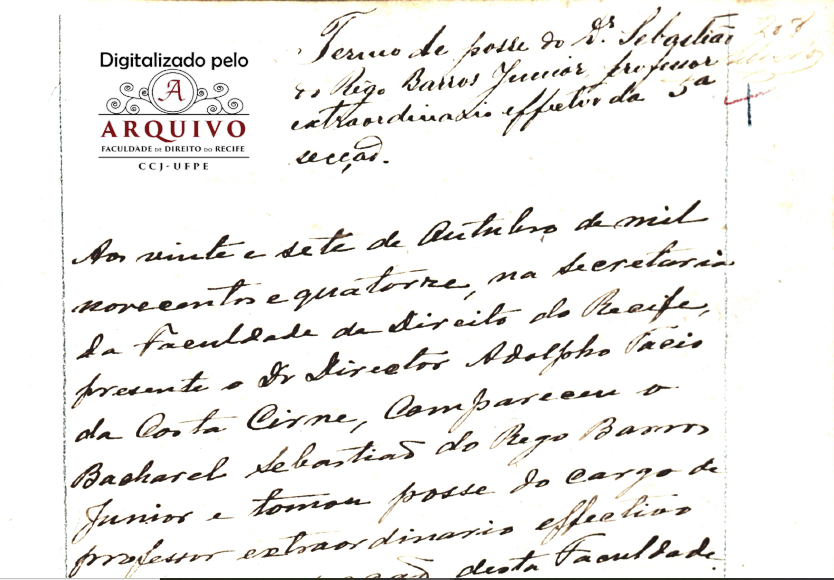 Digitalizado pelo
A
ARQUIVO
FACULDADE DE DIREITO DO RECIFE
CCJ-UFPE
Termo de posse do Dr. Sebastião
do Rêgo Barros Junior, professor
extraordinario effectivo da 5ª
secção.
208
Aos vinte e sete de Outubro de mil
novecentos e quatorze, na Secretaria
da Faculdade de Direito do Recife,
presente o Dr Director Adolpho Tacio
da Costa Cirne, compareceu o
Bacharel Sebastião do Rego Barros
Junior e tomou posse do cargo de
professor extraordinario effectivo
desta Faculdade.